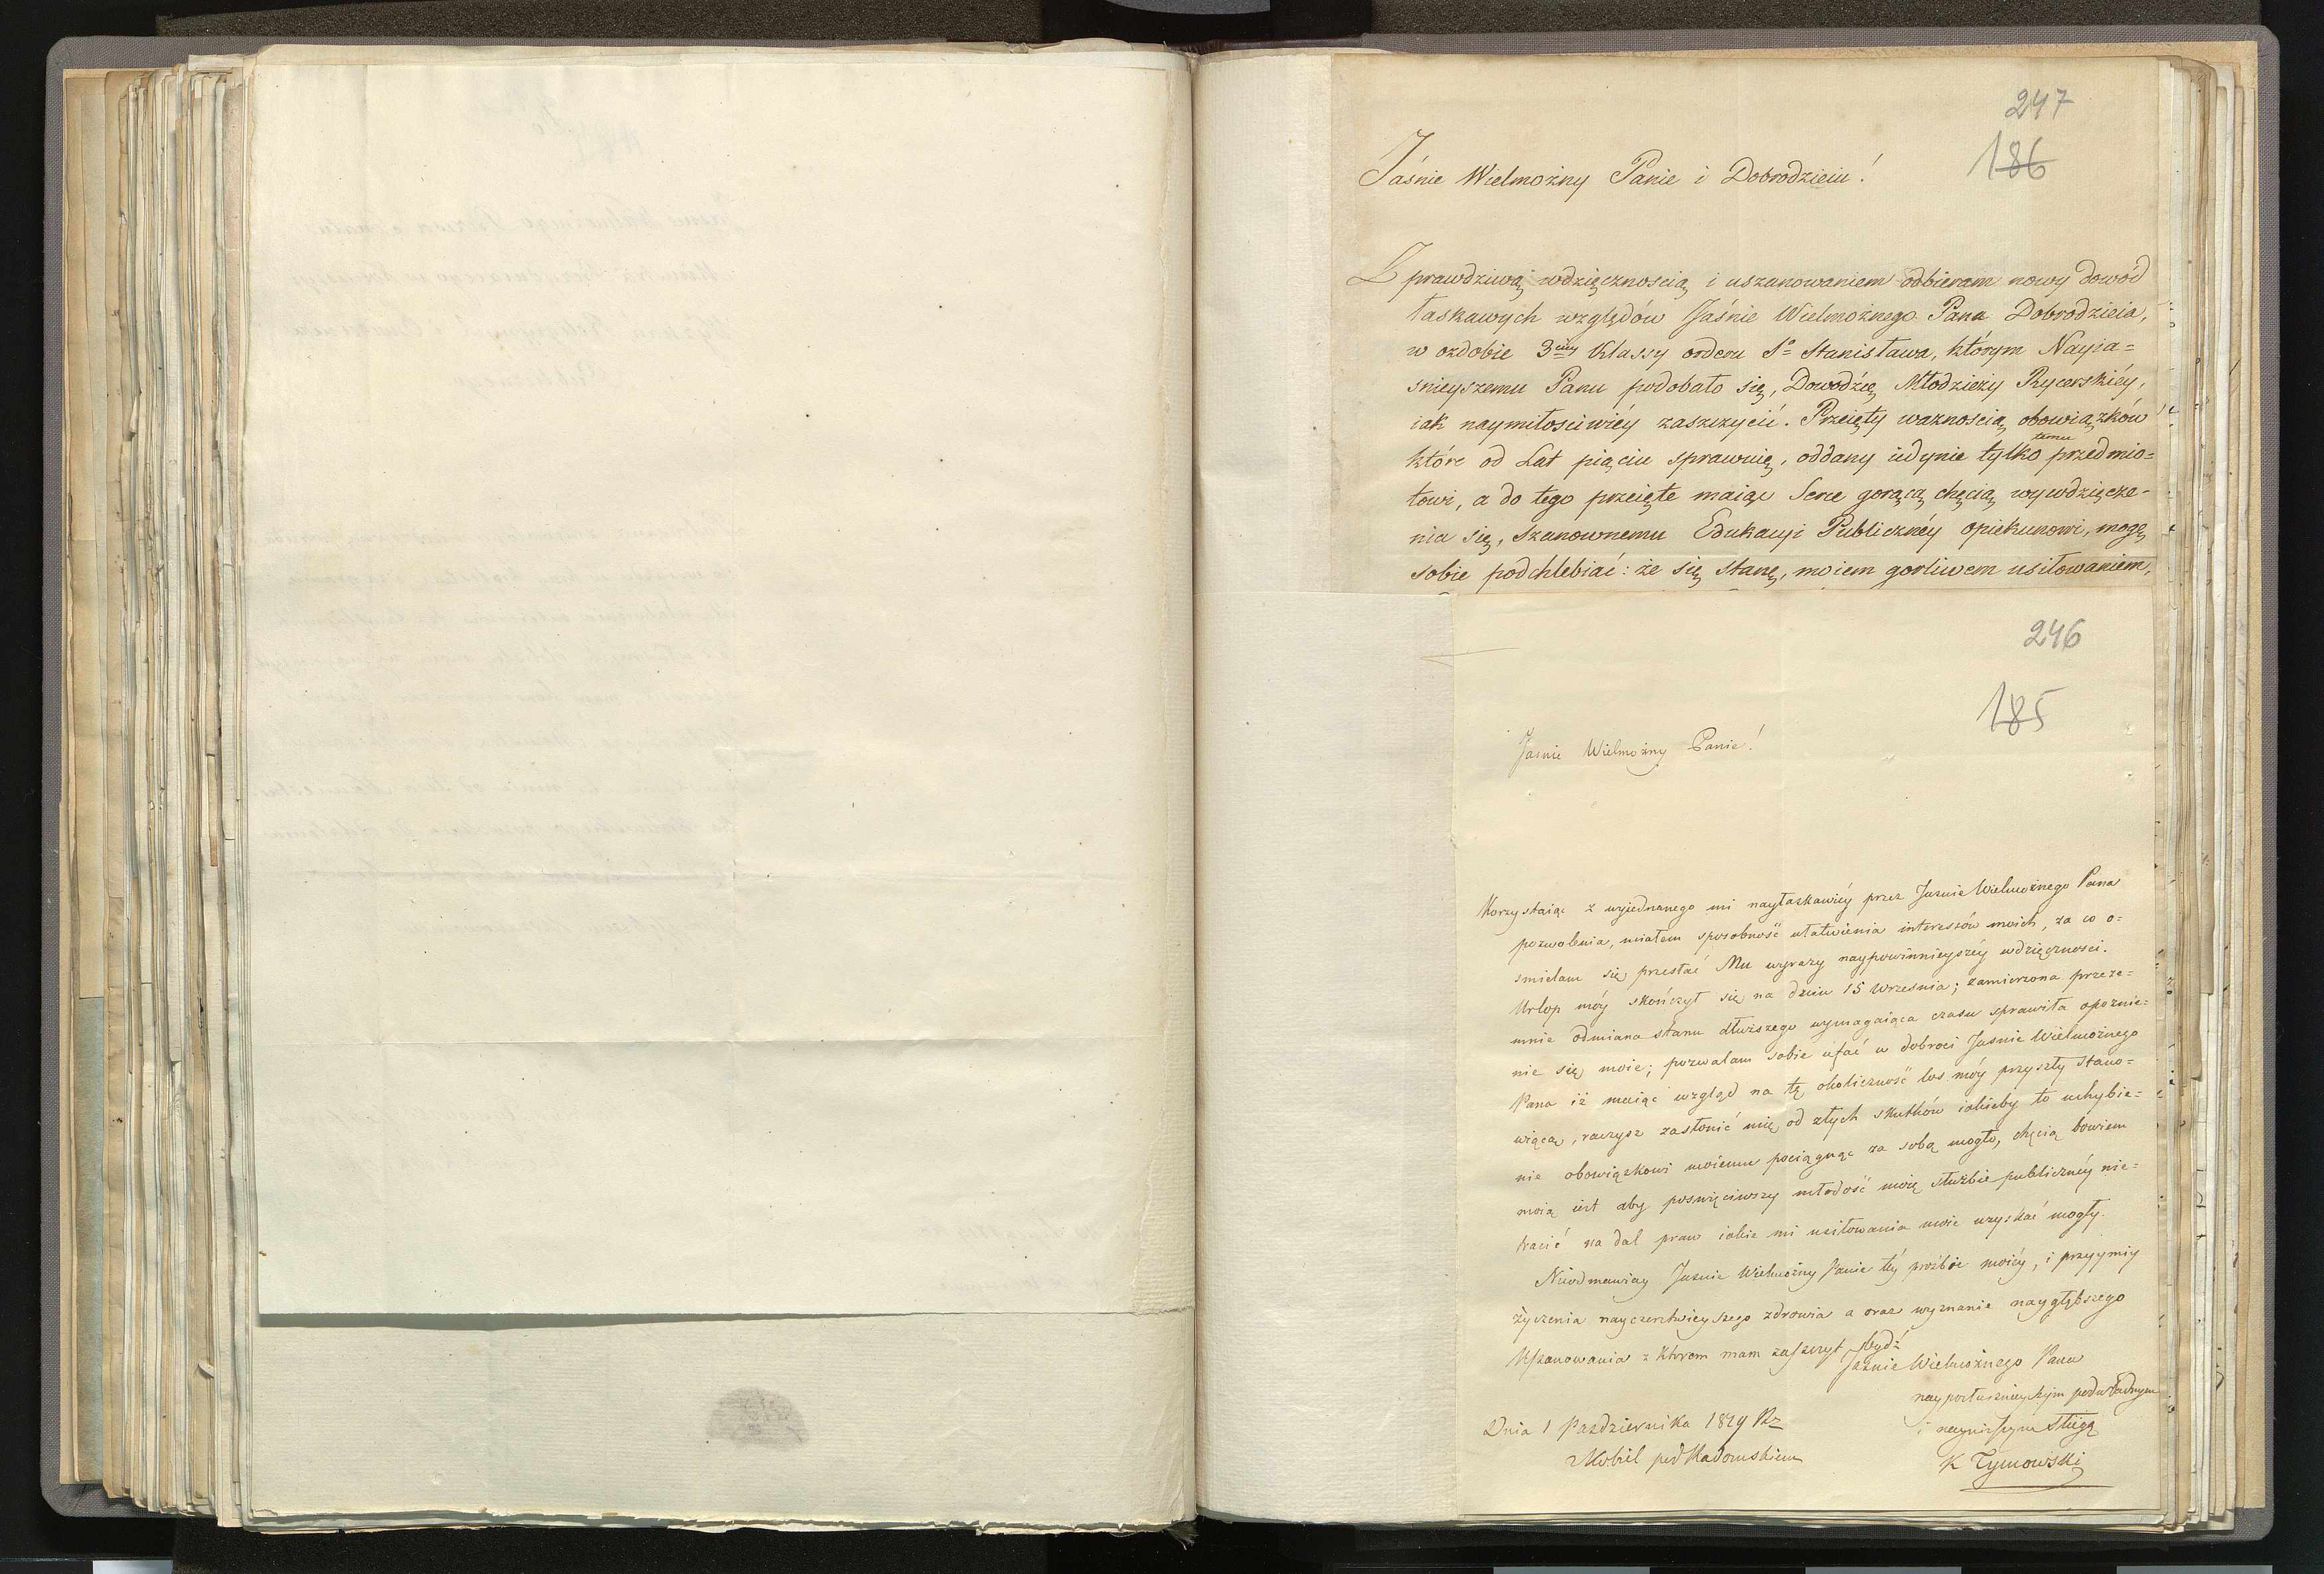 247
186
Jáśnie Wielmożny Panie i Dobrodzieiu!
Z prawdziwą wdzięcznością i uszanowaniem odbieram nowy dowód
łaskawych względów Jáśnie Wielmożnego Pana Dobrodzieia,
w ozdobie 3ciey Klassy orderu So Stanisława, którym Nayia=
śnieyszemu Panu podobało się, Dowódzcę Młodzieży Rycerskiéy,
iak naymiłościwiéy zaszczycić. Przeięty ważnością obowiązków
temu
które od Lat pięciu sprawuię, oddany iedynie tylko przedmio=
towi, a do tego przeięte maiąc Serce gorącą chęcią wywdzięcze-
nia się, szanownemu Edukacyi Publicznéy opiekunowi, mogę
sobie podchlebiać: że się stanę, moiem gorliwem usiłowaniem,
246
185
Jasnie Wielmożny Panie!
Korzystaiąc z wyiednanego mi nayłaskawiéy przez Jasnie Wielmożnego Pana
pozwolenia, miałem sposobność ułatwienia interessów moich, za co o=
smielam się przesłać Mu wyrazy naypowinnieyszéy wdzięczności.
Urlop móy skończył się na dniu 15 Wrzesnia; zamierzona przeze=
mnie odmiana stanu dłuższego wymagaiąca czasu sprawiła opoznie=
nie się moie; pozwalam sobie ufać w dobroci Jasnie Wielmożnego
Pana iż maiąc wzgląd na tę okoliczność los móy przyszły stano=
wiącą, raczysz zasłonić mię od złych skutków iakieby to uchybie=
nie obowiązkowi moiemu pociągnąc za sobą mogło, chęcią bowiem
moią iest aby poswięciwszy młodość moię służbie publicznéy nie=
tracić na dal praw iakie mi usiłowania moie uzyskać mogły.
Nieodmawiay Jasnie Wielmożny Panie téy prośbie moiéy, i przyymiy
życzenia nayczerstwieyszego zdrowia a oraz wyznanie naygłębszego
Uszanowania z ktorem mam zaszczyt bydź
Jasnie Wielmożnego Pana
nayposłusznieyszym podwładnym
i nayniższym sługą
Dnia 1 Pazdziernika 1819 Rz
K Tymowski
Mobil pod Radomskiem